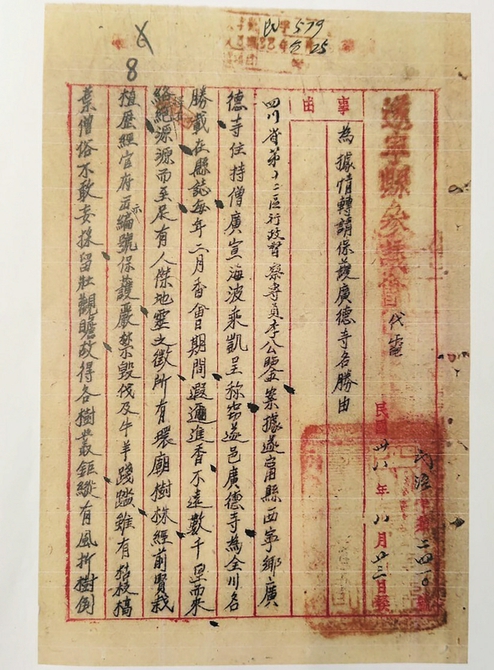 579
25
8
遂寧縣參議會 代電
民國卅八年八月廿三日發
事由
為據情轉請保護廣德寺名勝由
四川省第十二區行政督察專員李公鑒案據遂甯縣西寧鄉廣
德寺住持僧廣宣海波乘凱呈称窃遂邑廣德寺為全川名
勝載在縣誌每年二月香會日期間遐邇進香不遠數千里而來
源源而至足有人傑地靈之徵所有環廟樹株經前賢栽
植歷經官府示編號保護嚴禁毀伐及牛羊踐踏雖有枯枝槁
葉僧俗不敢妄採留壯觀瞻故得各樹叢鉅纖有風折樹倒